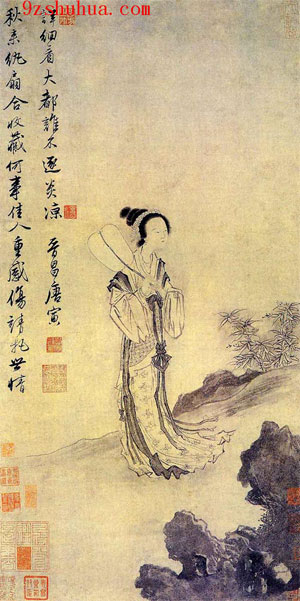 9zshuhua.com
秋来紈扇合收藏何事佳人重感傷請把世情
詳細看大都誰不逐炎凉
晉昌唐寅